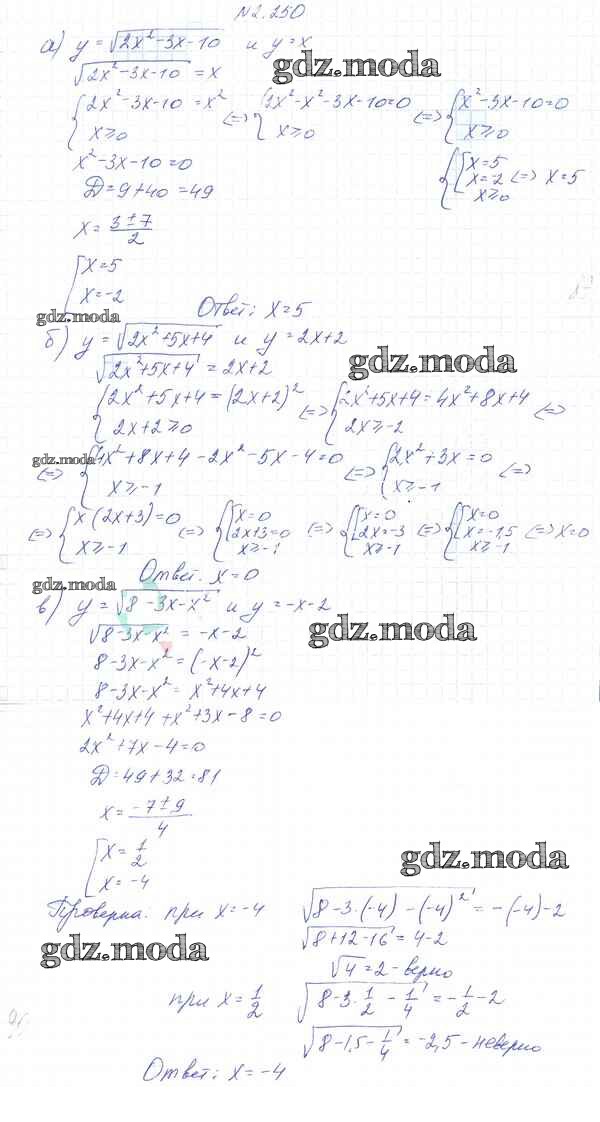 №2.250
а) y = √(2x² -3x -10) и y = x
gdz.moda
√(2x² -3x -10) = x
{2x² -3x -10 = x² x ≥ 0 <=> {2x² -x² -3x -10 = 0 x ≥ 0 <=> {x² -3x -10 = 0 x ≥ 0
x² -3x -10 = 0
{[x = 5 x = -2 x ≥ 0 <=> x = 5
D = 9 + 40 = 49
x = (3 ± 7)/2
[x = 5
x = -2
Ответ: x = 5
gdz.moda
б) y = √(2x² +5x +4) и y = 2x +2
gdz.moda
√(2x² +5x +4) = 2x +2
{2x² +5x +4 = (2x+2)² 2x +2 ≥ 0 <=> {2x² +5x +4 = 4x² +8x +4 2x ≥ -2 <=>
gdz.moda
<=> {4x² +8x +4 -2x² -5x -4 = 0 x ≥ -1 <=> {2x² +3x = 0 x ≥ -1 <=>
<=> {x(2x+3) = 0 x ≥ -1 <=> {[x = 0 2x+3 = 0 x ≥ -1 <=> {[x = 0 2x = -3 x ≥ -1 <=> {[x = 0 x = -1,5 x ≥ -1 <=> x = 0
Ответ: x = 0
gdz.moda
в) y = √(8 -3x -x²) и y = -x -2
gdz.moda
√(8 -3x -x²) = -x -2
8 -3x -x² = (-x -2)²
8 -3x -x² = x² +4x +4
x² +4x +4 +x² +3x -8 = 0
2x² +7x -4 = 0
D = 49 + 32 = 81
x = (-7 ± 9)/4
[x = 1/2
x = -4
gdz.moda
Проверка: при x = -4 √(8 -3·(-4) -(-4)²) = -(-4) -2
√(8 +12 -16) = 4 -2
gdz.moda
√4 = 2 - верно
при x = 1/2 √(8 -3·1/2 - 1/4) = -1/2 -2
√(8 -1,5 - 1/4) = -2,5 - неверно
Ответ: x = -4